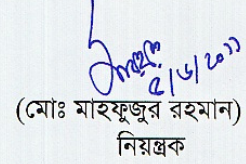 ৫/৬/২০১১
(মোঃ মাহফুজুর রহমান)
নিয়ন্ত্রক